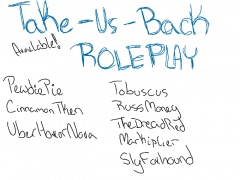 Take-Us-Back
Available!
ROLEPLAY
PewdiePie
CinnamonToken
UberHaxorNova
Tobuscus
RussMoney
TheDreadRed
Markiplier
SlyFoxhound